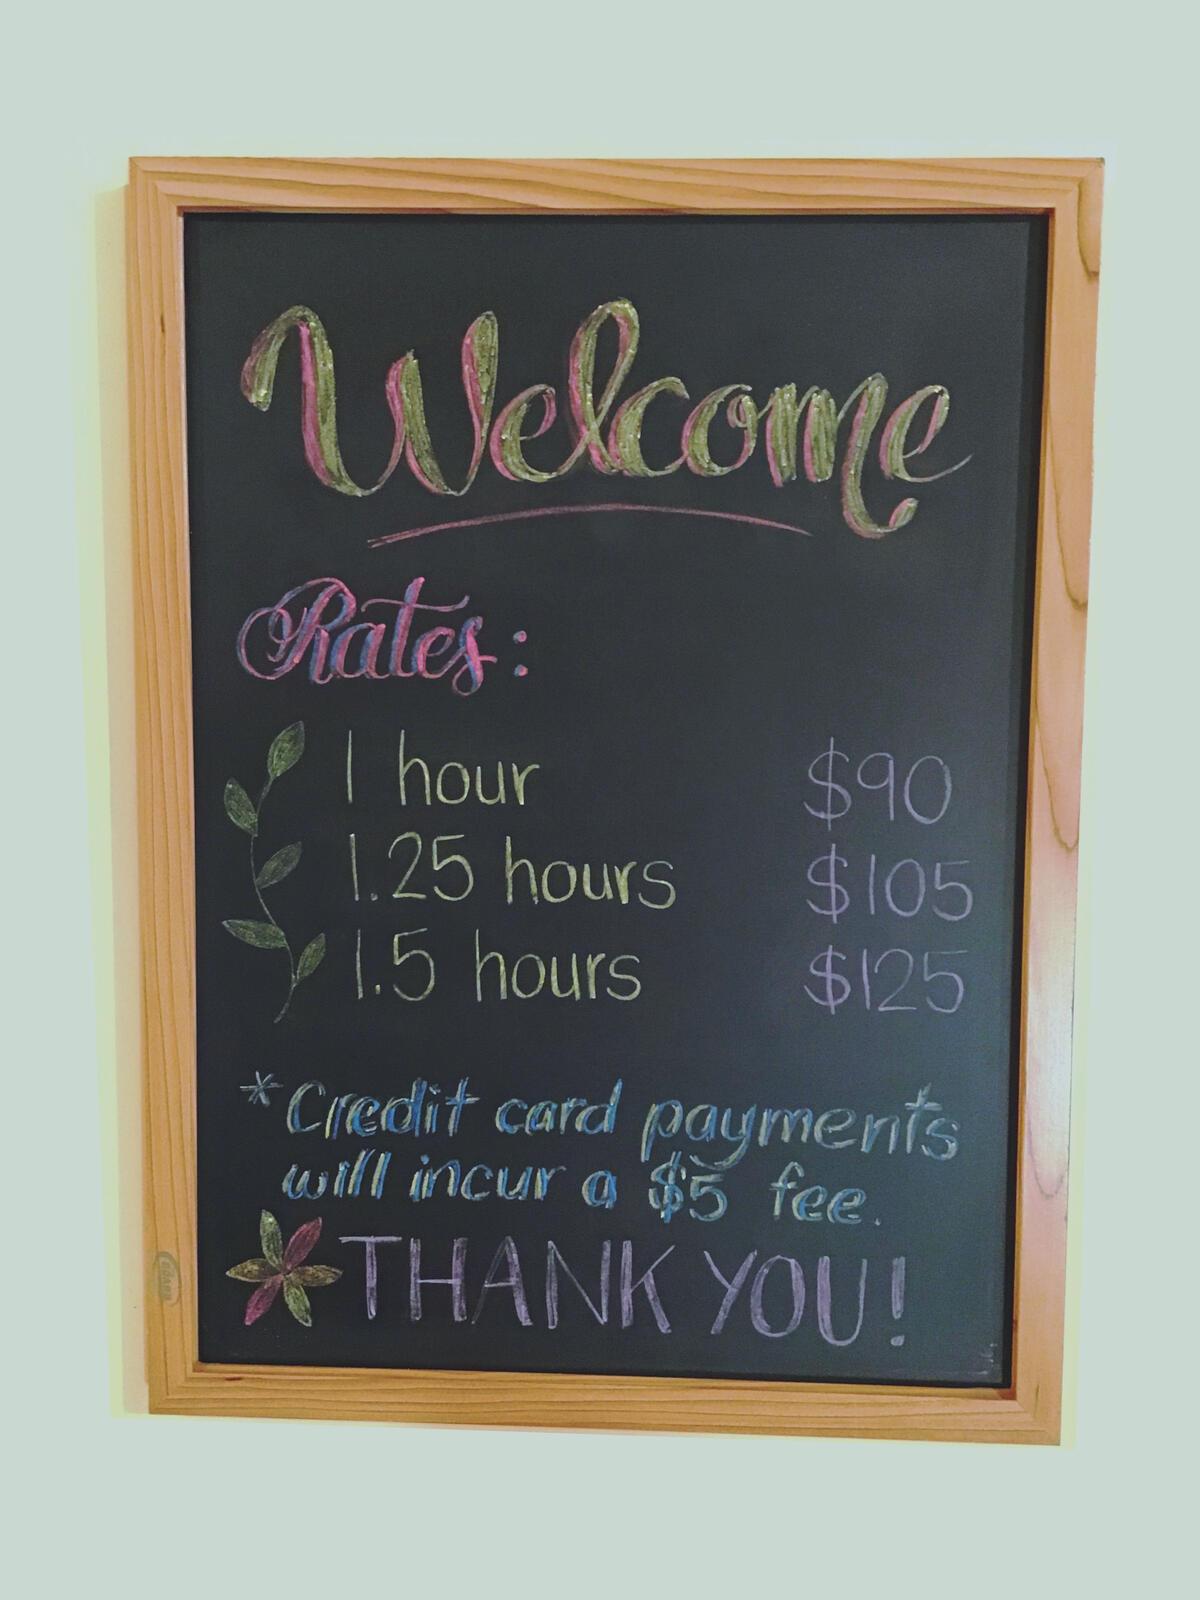 Welcome
Rates:
1 hour $90
1.25 hours $105
1.5 hours $125
*Credit card payments
will incur a $5 fee.
THANK YOU!